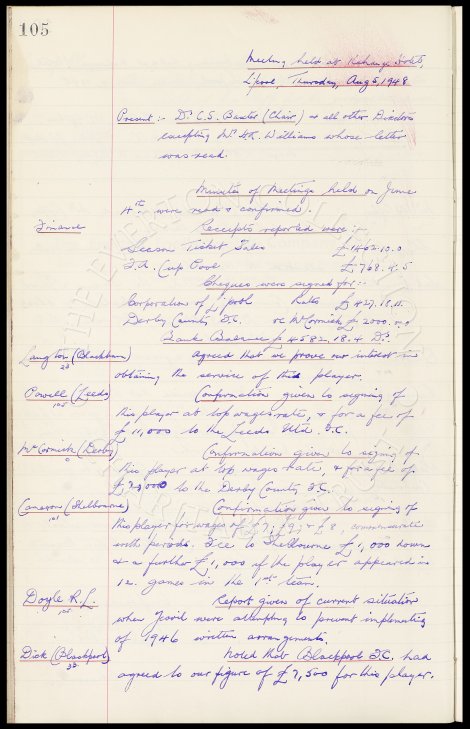 105
Meeting held at Exchange Hotel,
L'pool, Thursday, Aug 5, 1948
Present :- Dr C.S. Baxter (Chair) & all other Directors
excepting Mr. Williams whose letter
was read.
Minutes of Meetings held on June
4th were read & confirmed.
Finance
Receipts reported were :-
Season Ticket Sales £1402.10.0
F.A. Cup Pool £768.4.5
Cheques were signed for :-
Corporation of L'pool Rates £427.18.11.
Derby County F.C. re McCormick £2000.0.0
Bank Balance £4582.18.4 Dr.
Langton (Blackburn)
agreed that we prove our interest in
obtaining the service of this player.
Powell (Leeds)
105
Confirmation given to signing of
this player at top wages rate, & for a fee of
£11,000 to the Leeds Utd. F.C.
McCormick (Derby)
Confirmation given to signing of
this player at top wages rate, & for a fee of
to the Derby County F.C.
Cameron (Shelbourne)
101
Confirmation given to signing of
this player for wages of £7, £9, & £8, commensurate
with periods. Fee to Shelbourne £1,000 down
& a further £1,000 if the player appeared in
12 games in the 1st team.
Doyle R.L.
105
Report given of current situation
when were attempting to prevent implementing
of 1946 written arrangements.
Dick (Blackpool)
Noted that Blackpool F.C. had
agreed to our figure of £7,500 for this player.